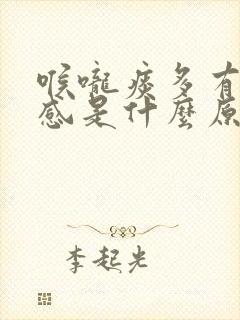 喉嚨痰多有
感是什麼原
李起光